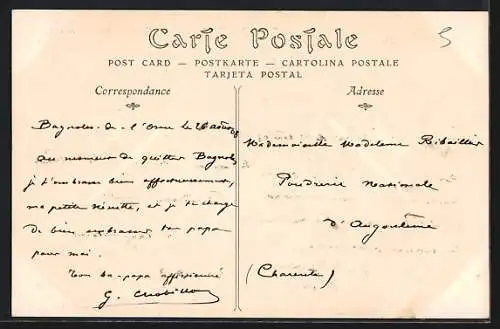 Carte Postale
5
POST CARD — POSTKARTE — CARTOLINA POSTALE
TARJETA POSTAL
Correspondance
Bagnoles-de-l'Orne le 26 août
Au moment de quitter Bagnoles
je t'embrasse bien affectueusement,
ma petite Nénette, et je te charge
de bien embrasser ton papa
pour moi.
Ton bon-papa affectionné
G.
Adresse
Mademoiselle Madeleine
Poudrerie Nationale
d'Angoulême
(Charente)